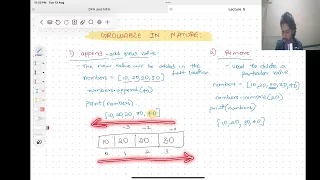 DFA and NFA
Lecture 5
GROWABLE IN NATURE:
1) append → add new value:
- The new value will be added in the last location
numbers = [10, 20, 20, 30]
numbers.append(40)
print(numbers)
[10, 20, 20, 30, 40]
-3 -2
10 20 20 30
0 1 2 3
2) Remove
- used to delete a particular value
numbers = [10, 20, 20, 30, 40]
numbers.remove(20)
print(numbers)
[10, 20, 30, 40]